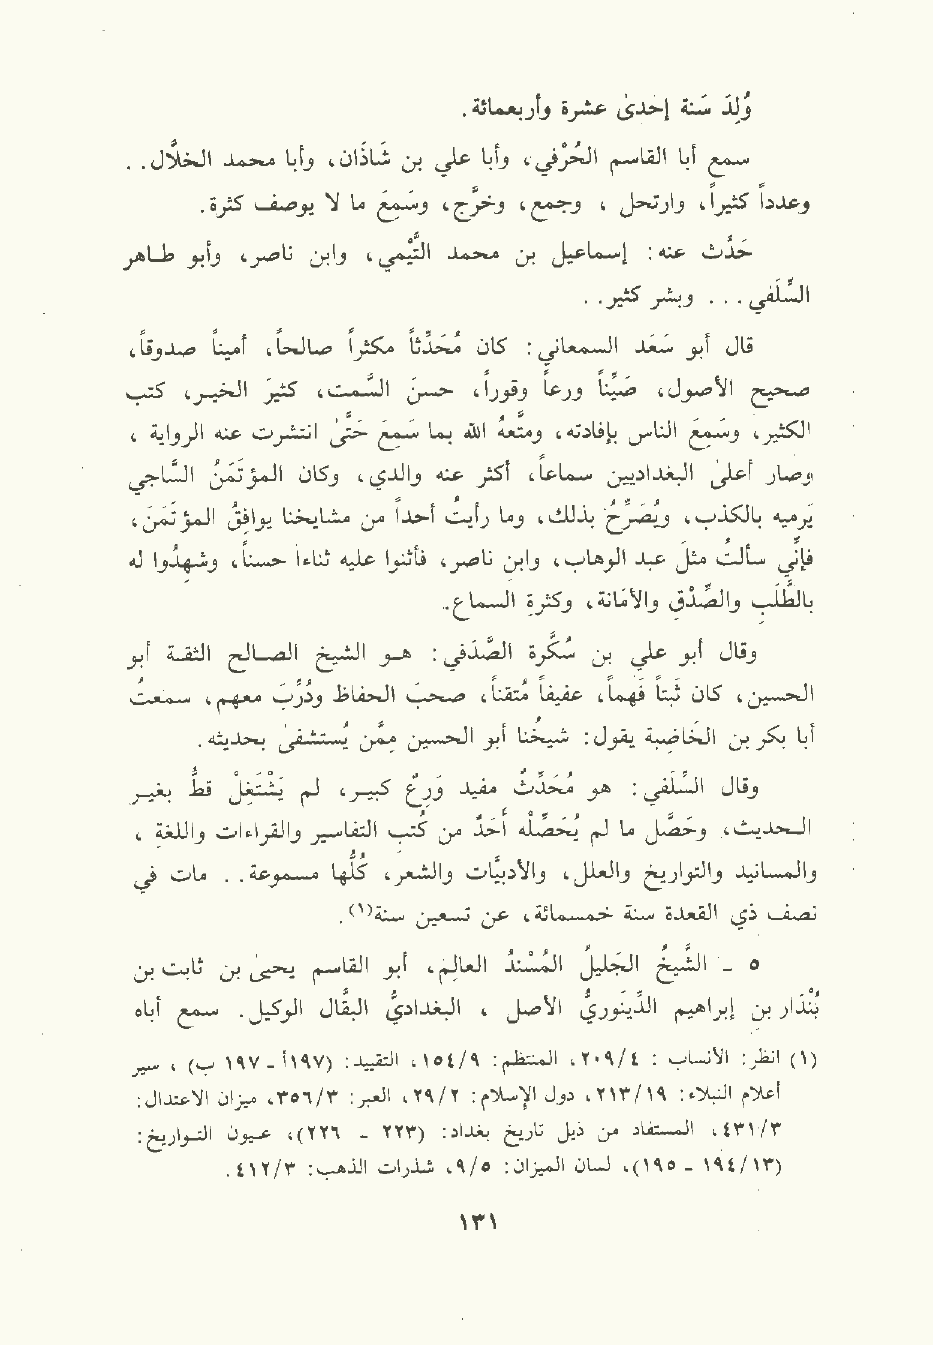 وُلِدَ سَنة إحدىٰ عشرة وأربعمائة.
سمع أبا القاسم الحُرْفي، وأبا علي بن شَاذَان، وأبا محمد الخلّال. .
وعدداً كثيراً، وارتحل ، وجمع، وخرَّج، وسَمِعَ ما لا يوصف كثرة.
حَدَّث عنه: إسماعيل بن محمد التَّيْمي، وابن ناصر، وأبو طاهر
السِّلَفي. . . وبشر كثير. .
قال أبو سَعْد السمعاني: كان مُحَدِّثاً مكثراً صالحاً، أميناً صدوقاً،
صحيح الأصول، صَيِّناً ورعاً وقوراً، حسنَ السَّمت، كثيرَ الخير، كتب
الكثير، وسمعَ الناس بإفادته، ومتَّعهُ الله بما سمعَ حتَّىٰ انتشرت عنه الرواية ،
وصار أعلىٰ البغداديين سماعاً، أكثر عنه والدي، وكان المؤتَمَنُ السَّاجي
يَرميه بالكذب، ويُصَرِّحُ بذلك، وما رأيتُ أحداً من مشايخنا يوافِقُ المؤتَمَنَ،
فإنِّي سألتُ مثلَ عبد الوهاب، وابن ناصر، فأثنوا عليه ثناءاً حسناً، وشهِدُوا له
بالطَّلَبِ والصِّدْقِ والأمَانة، وكثرةِ السماع.
وقال أبو علي بن سُكَّرة الصَّدَفي: هو الشيخ الصالح الثقة أبو
الحسين، كان ثَبْتاً فَهماً، عفيفاً مُتقناً، صحبَ الحفاظ ودُرِّبَ معهم، سمعتُ
أبا بكر بن الخَاضبة يقول: شيخُنا أبو الحسين ممَّن يُستشفىٰ بحديثه.
وقال السِّلَفي: هو مُحَدِّثٌ مفيد وَرِعٌ كبير، لم يَشْتَغِلْ قطُّ بغير
الحديث، وحصَّل ما لم يُحَصِّلْه أحَدٌ من كُتب التفاسير والقراءات واللغة ،
والمسانيد والتواريخ والعلل، والأدبيَّات والشعر، كُلُّها مسموعة. . مات في
نصف ذي القعدة سنة خمسمائة، عن تسعين سنة(١).
٥ - الشَّيخُ الجَليلُ المُسْندُ العالِم، أبو القاسم يحيىٰ بن ثابت بن
بُنْدَار بن إبراهيم الدِّينَوريُّ الأصل ، البغداديُّ البقَّال الوكيل. سمع أباه
(١) انظر: الأنساب : ٢٠٩/٤، المنتظم: ١٥٤/٩، التقييد: (١٩٧أ - ١٩٧ ب) ، سير
أعلام النبلاء: ٢١٣/١٩، دول الإسلام: ٢٩/٢، العبر: ٣٥٦/٣، ميزان الاعتدال:
٤٣١/٣، المستفاد من ذيل تاريخ بغداد: (٢٢٣ - ٢٢٦)، عيون التواريخ:
(١٩٤/١٣ - ١٩٥)، لسان الميزان: ٩/٥، شذرات الذهب: ٤١٢/٣.
١٣١